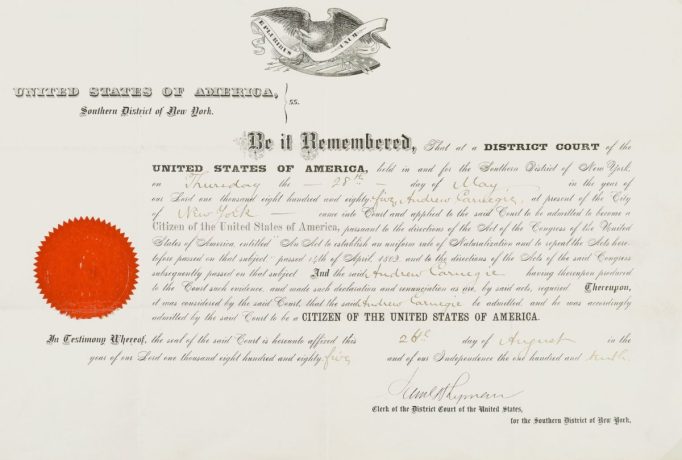 E PLURIBUS UNUM
UNITED STATES OF AMERICA,
ss.
Southern District of New York.
Be it Remembered, That at a DISTRICT COURT of the
UNITED STATES OF AMERICA, held in and for the Southern District of New York,
on Thursday the 28th day of May in the year of
our Lord one thousand eight hundred and eighty five, Andrew Carnegie, at present of the City
of New York came into Court and applied to the said Court to be admitted to become a
Citizen of the United States of America, pursuant to the directions of the Act of the Congress of the United
States of America, entitled "An Act to establish an uniform rule of Naturalization and to repeal the Acts here-
tofore passed on that subject" passed 14th of April, 1802, and to the directions of the Acts of the said Congress
subsequently passed on that subject And the said Andrew Carnegie having thereupon produced
to the Court such evidence, and made such declaration and renunciation as are, by said acts, required Thereupon,
it was considered by the said Court, that the said Andrew Carnegie be admitted, and he was accordingly
admitted by the said Court to be a CITIZEN OF THE UNITED STATES OF AMERICA.
In Testimony Whereof, the seal of the said Court is hereunto affixed this 26th day of August in the
year of our Lord one thousand eight hundred and eighty five and of our Independence the one hundred and tenth.
Saml H Lyman
Clerk of the District Court of the United States,
for the Southern District of New York.